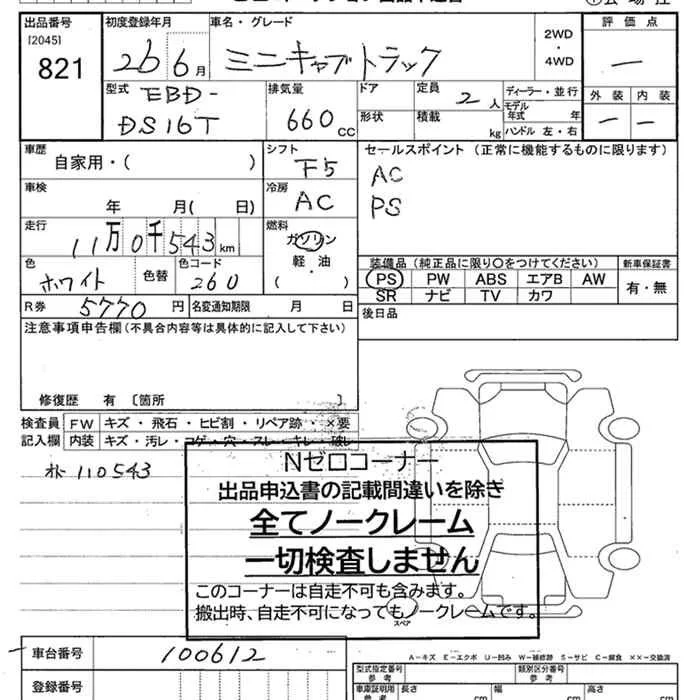 出品番号 初度登録年月 車名・グレード 評価点
[2045] 2WD・4WD
821 26 6月 ミニキャブトラック ー
型式 排気量 ドア 定員 ディーラー・並行 外装 内装
EBD- 2人 モデル年式 年 ー ー
DS16T 660cc 形状 積載 kg ハンドル 左・右
車歴 シフト セールスポイント (正常に機能するものに限ります)
自家用・( ) F5 AC
車検 冷房 PS
年 月( 日) AC
走行 燃料
11万0千543km ガソリン
軽・油
( )
装備品(純正品に限り○をつけてください) 新車保証書
色 色替 色コード PS PW ABS エアB AW 有・無
ホワイト 260 SR ナビ TV カワ
R券 5770円 名変通知期限 月 日 後日品
注意事項申告欄(不具合内容等は具体的に記入して下さい)
修復歴 有〔箇所 〕
検査員 FW キズ・飛石・ヒビ割・リペア跡・×要
記入欄 内装 キズ・汚レ・コゲ・穴・スレ・キレ・破レ
110543
Nゼロコーナー
出品申込書の記載間違いを除き
全てノークレーム
一切検査しません
このコーナーは自走不可も含みます。
搬出時、自走不可になってもノークレームです。
スペア
A-キズ E-エクボ U-凹み W-補修跡 S-サビ C-腐食 ××-交換済
車台番号 100612 型式指定番号 参考 類別区分番号 参考
登録番号 車庫証明用 参考 長さ cm 幅 cm 高さ cm